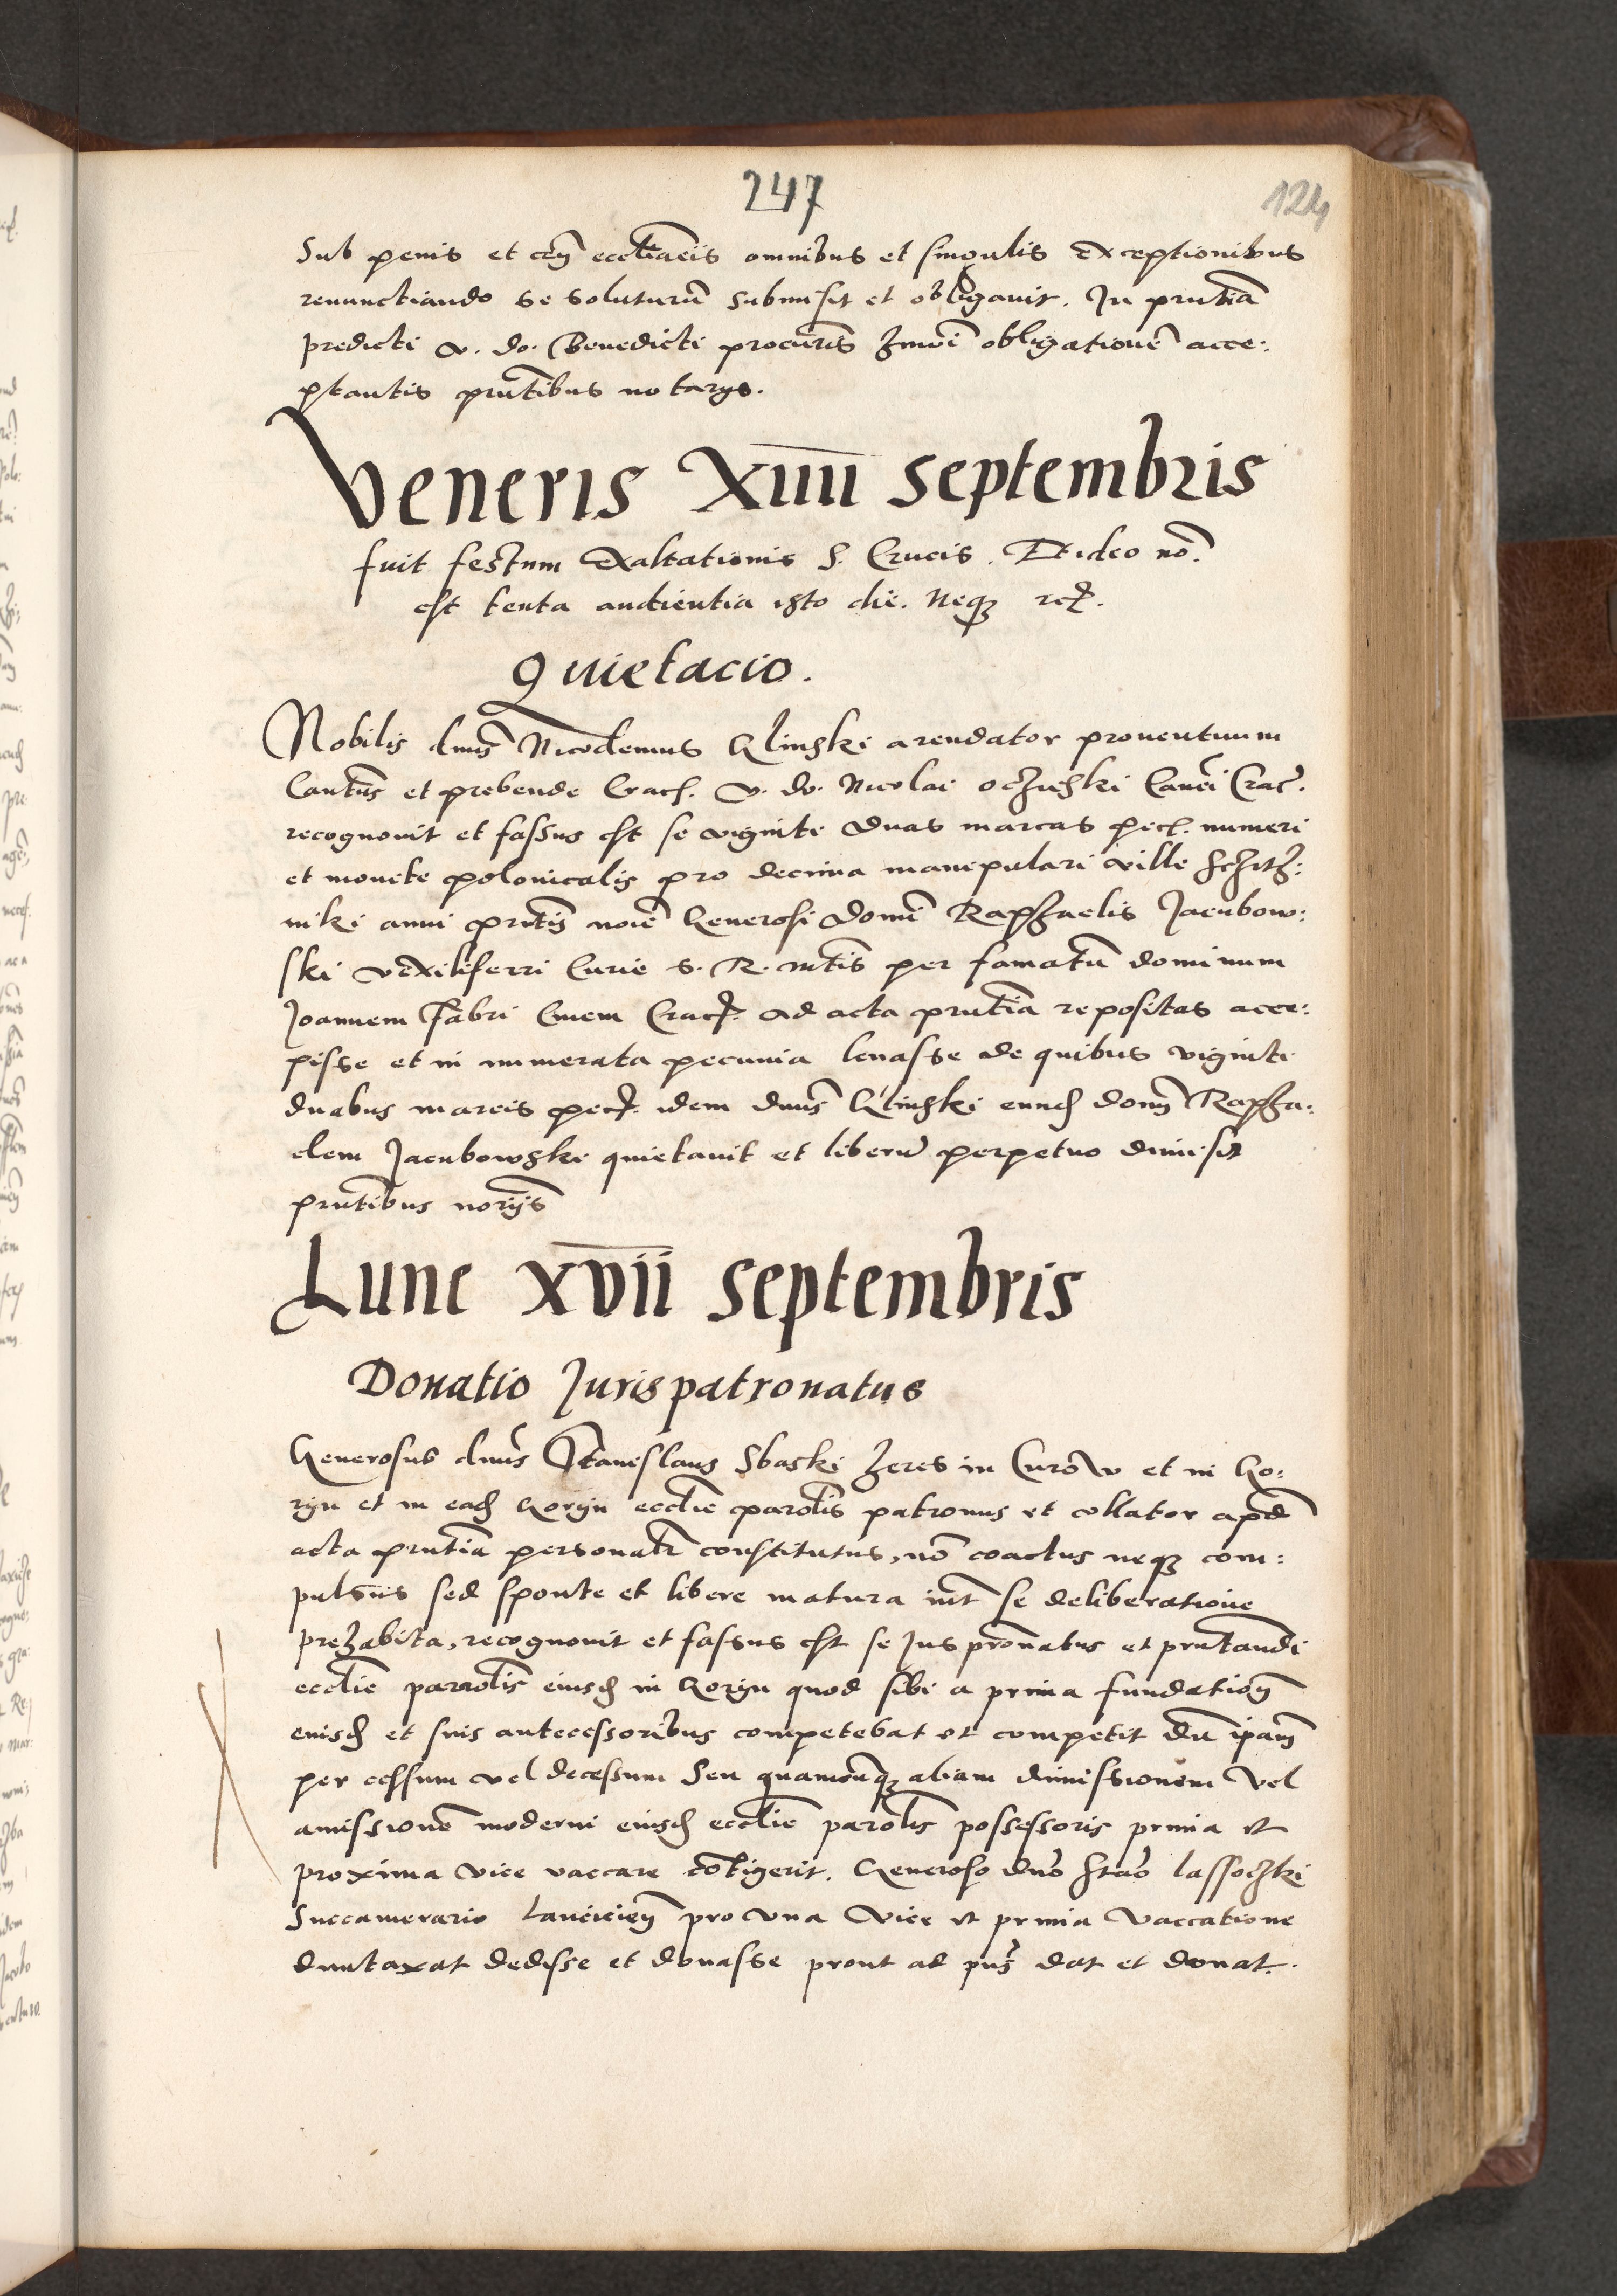 247
124
Sub penis et cen̄ ecclīaciis omnibus et singulis exceptionibus
renunctiando se soluturū submisit et obligavit. In prntiā
predicti v. do. Benedicti procurīs hmōi obligationē acce:
ptantis prntibus notarys.
Veneris XIIII Septembris
fuit festum Exaltationis S. Crucis. Et ideo nō
est tenta audientia isto die. Neqz
Quietacio.
Nobilis dnus Nicodemus Glinski arendator proventuum
Cantus et prebende Crac. v. do. Nicolai Canci Crac.
recognovit et fassus est se viginti duas marcas pec. numeri
et monete polonicalis pro decima manipulari ville
niki anni prntis noīe Generosi Domi Raphaelis Jacubow:
ski vexiliferri Curie S. R. mtis per famatū dominum
Joannem Fabri Civem Crac. ad acta prntia repositas acce:
pisse et in numerata pecunia levasse de quibus viginti
duabus marcis pec. idem dnus Glinski eund. domn Rapha:
elem Jacubowski quietavit et liberū perpetuo dimisit
prntibus noriis
Lune XVII Septembris
Donatio Jurispatronatus
Generosus dnus Stanislaus Sbaski heres in Curow et in Go:
ryn et in ead. Goryn ecclie parolis patronus et collator apd
acta prntia personalr constitutus, nō coactus neqz com:
pulsus sed sponte et libere matura int se deliberatione
prehabita, recognovit et fassus est se Jus pronatus et prntandi
ecclie parrolis eiusd. in Goryn quod sibi a prima fundation
eiusd. et suis antecessoribus competebat et competit dū ipam
per cessum vel decessum Seu quamcunqz aliam dimissionem vel
amissionē moderni eiusd. ecclie parolis possessoris prima et
proxima vice vaccare cōtigerit. Generoso dno Stao Lassoczki
Succamerario Lancicien pro una vice et prima vaccatione
duntaxat dedisse et donasse prout ad pns dat et donat.